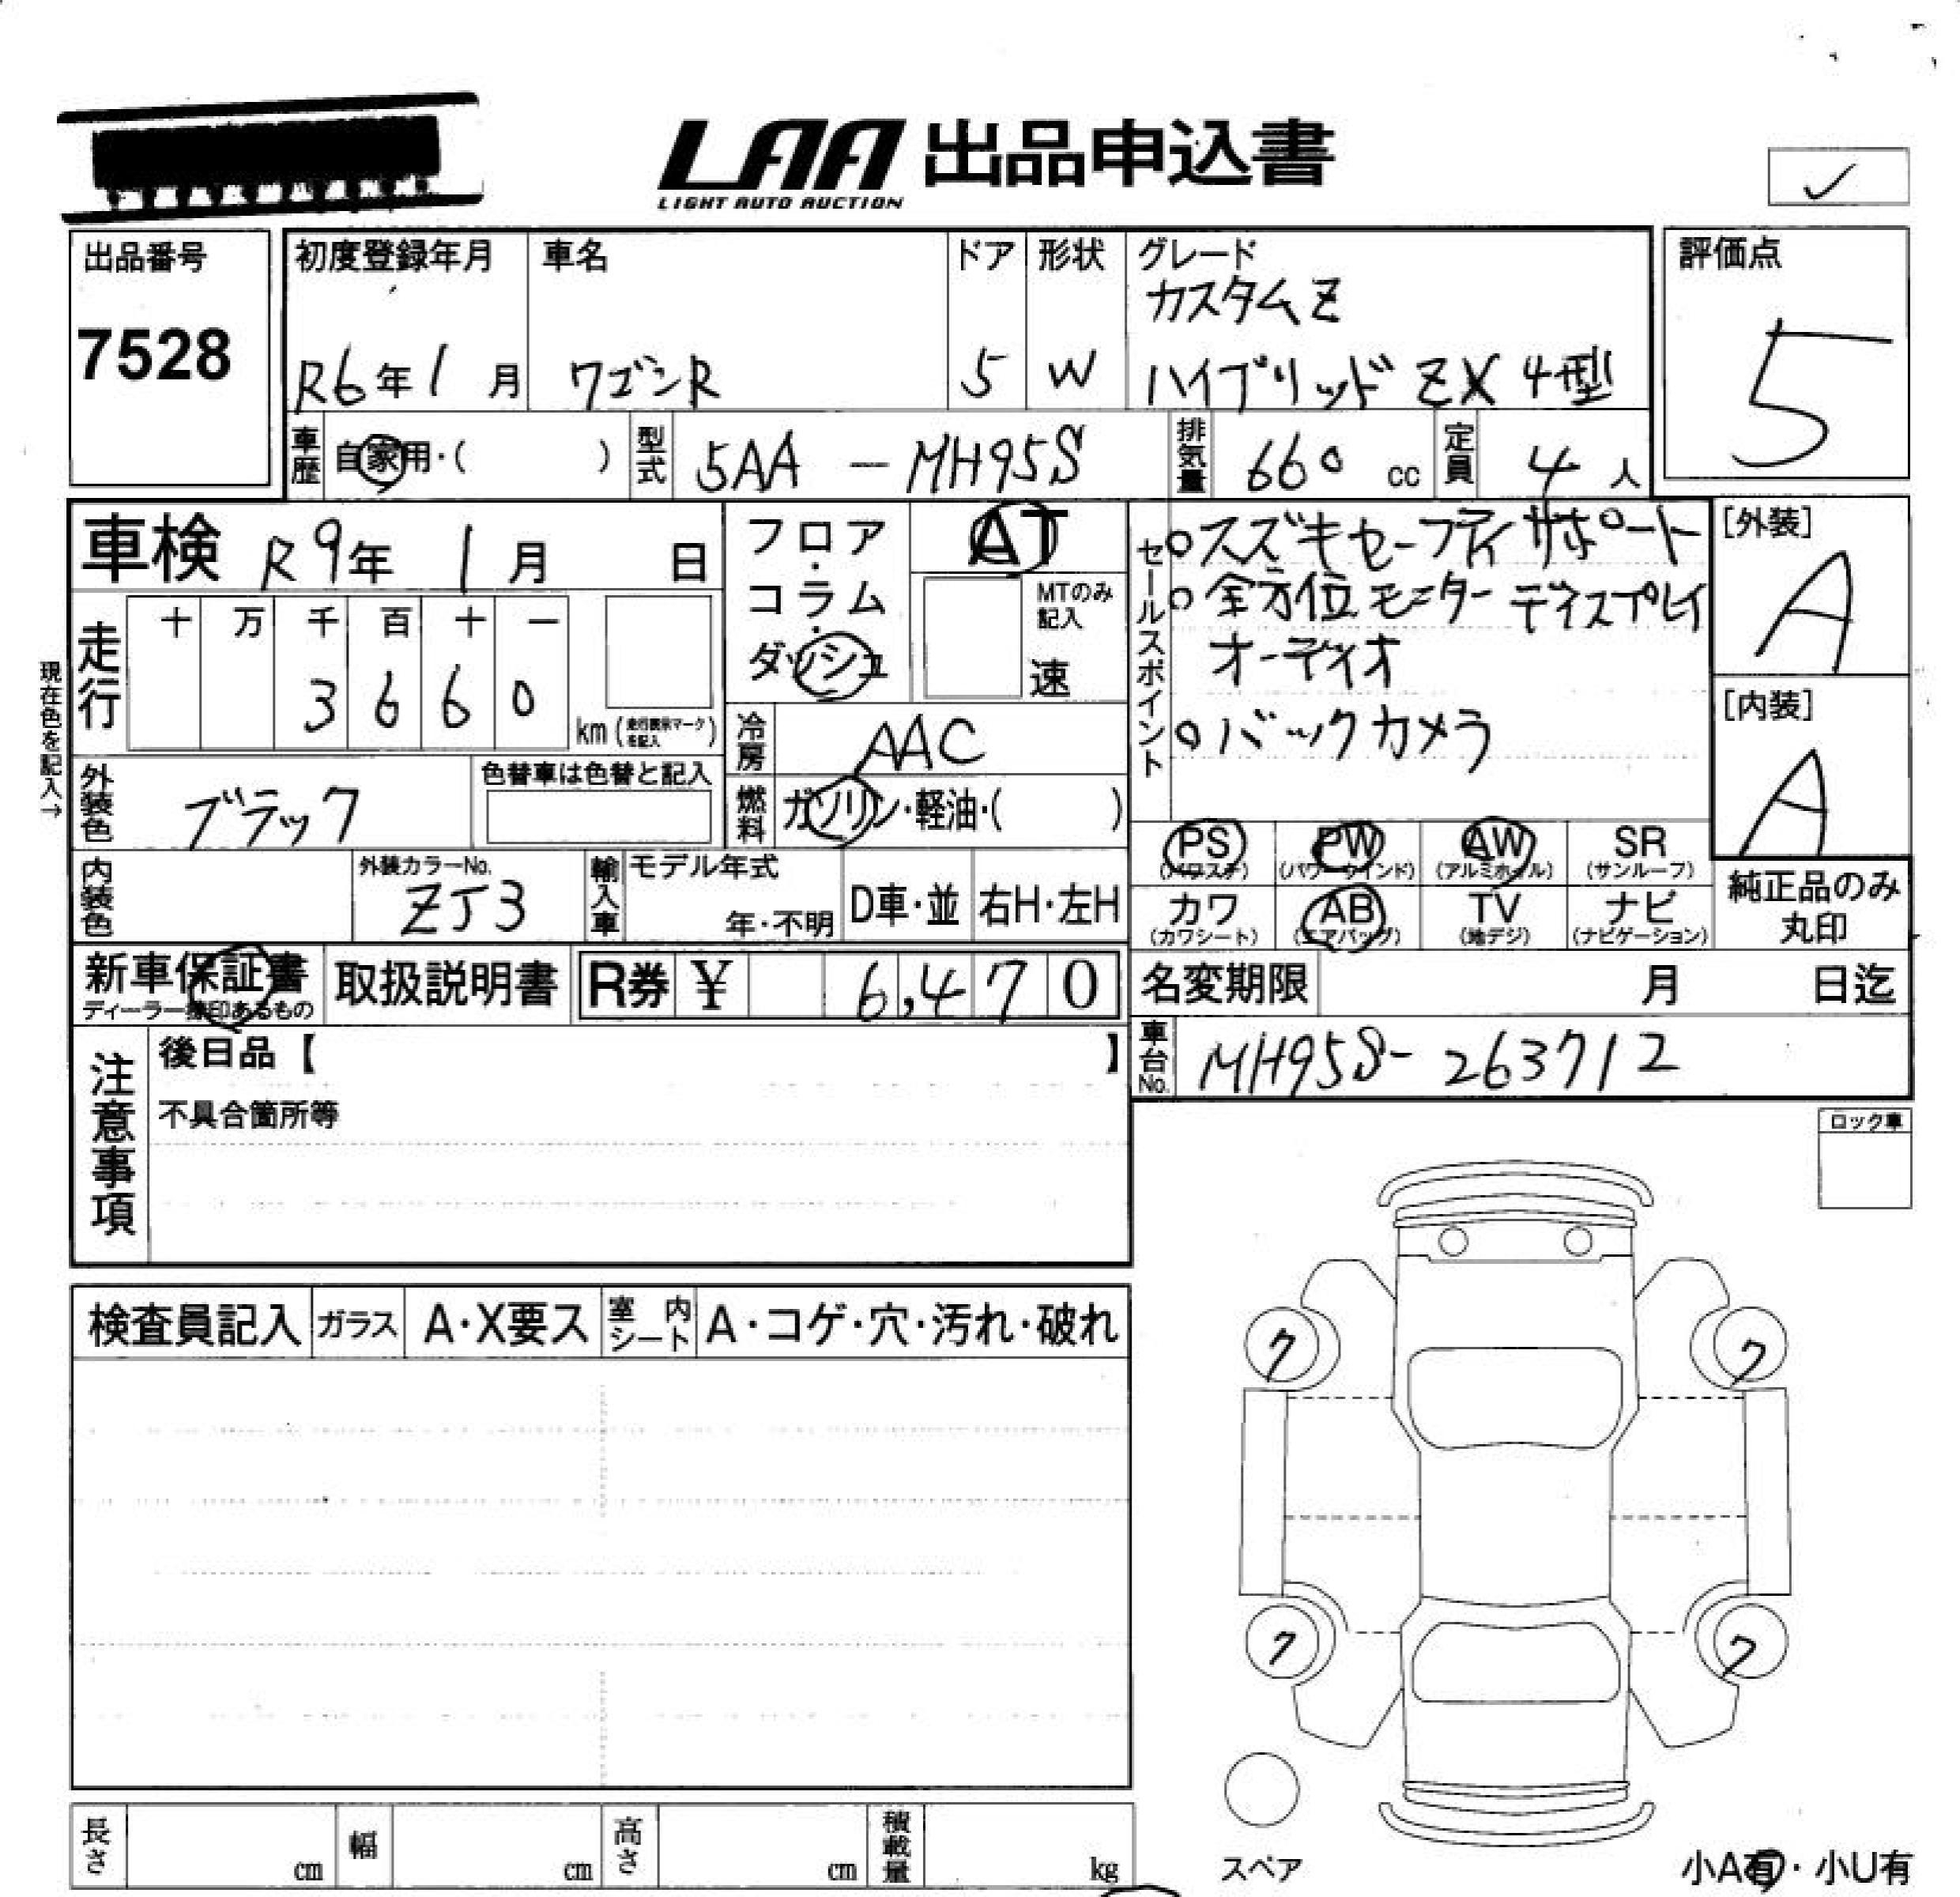 LAA 出品申込書
LIGHT AUTO AUCTION
✓
出品番号
7528
初度登録年月
R6年1月
車名
ワゴンR
ドア
5
形状
W
グレード
カスタムZ
ハイブリッド ZX 4型
評価点
5
車歴
自家用・( )
型式
5AA - MH95S
排気量
660 cc
定員
4 人
車検 R9年 1月 日
フロア・コラム・ダッシュ
AT
MTのみ記入
速
セールスポイント
○スズキセーフティサポート
○全方位モニターディスプレイ
オーディオ
○バックカメラ
[外装]
A
[内装]
A
現在色を記入→
走行
十 万 千 百 十 一
3 6 6 0
km (走行表示マークを記入)
冷房
AAC
外装色
ブラック
色替車は色替と記入
燃料
ガソリン・軽油・( )
PS (パワステ)
PW (パワーウインド)
AW (アルミホイル)
SR (サンルーフ)
内装色
外装カラーNo.
ZJ3
輸入車
モデル年式
年・不明
D車・並
右H・左H
カワ (カワシート)
AB (エアバッグ)
TV (地デジ)
ナビ (ナビゲーション)
純正品のみ
丸印
新車保証書
ディーラー捺印あるもの
取扱説明書
R券 ¥ 6,470
名変期限 月 日迄
注意事項
後日品【 】
不具合箇所等
車台No.
MH95S-263712
ロック車
検査員記入
ガラス
A・X要ス
室内シート
A・コゲ・穴・汚れ・破れ
ク
ク
ク
ク
スペア
小A有・小U有
長さ cm
幅 cm
高さ cm
積載量 kg